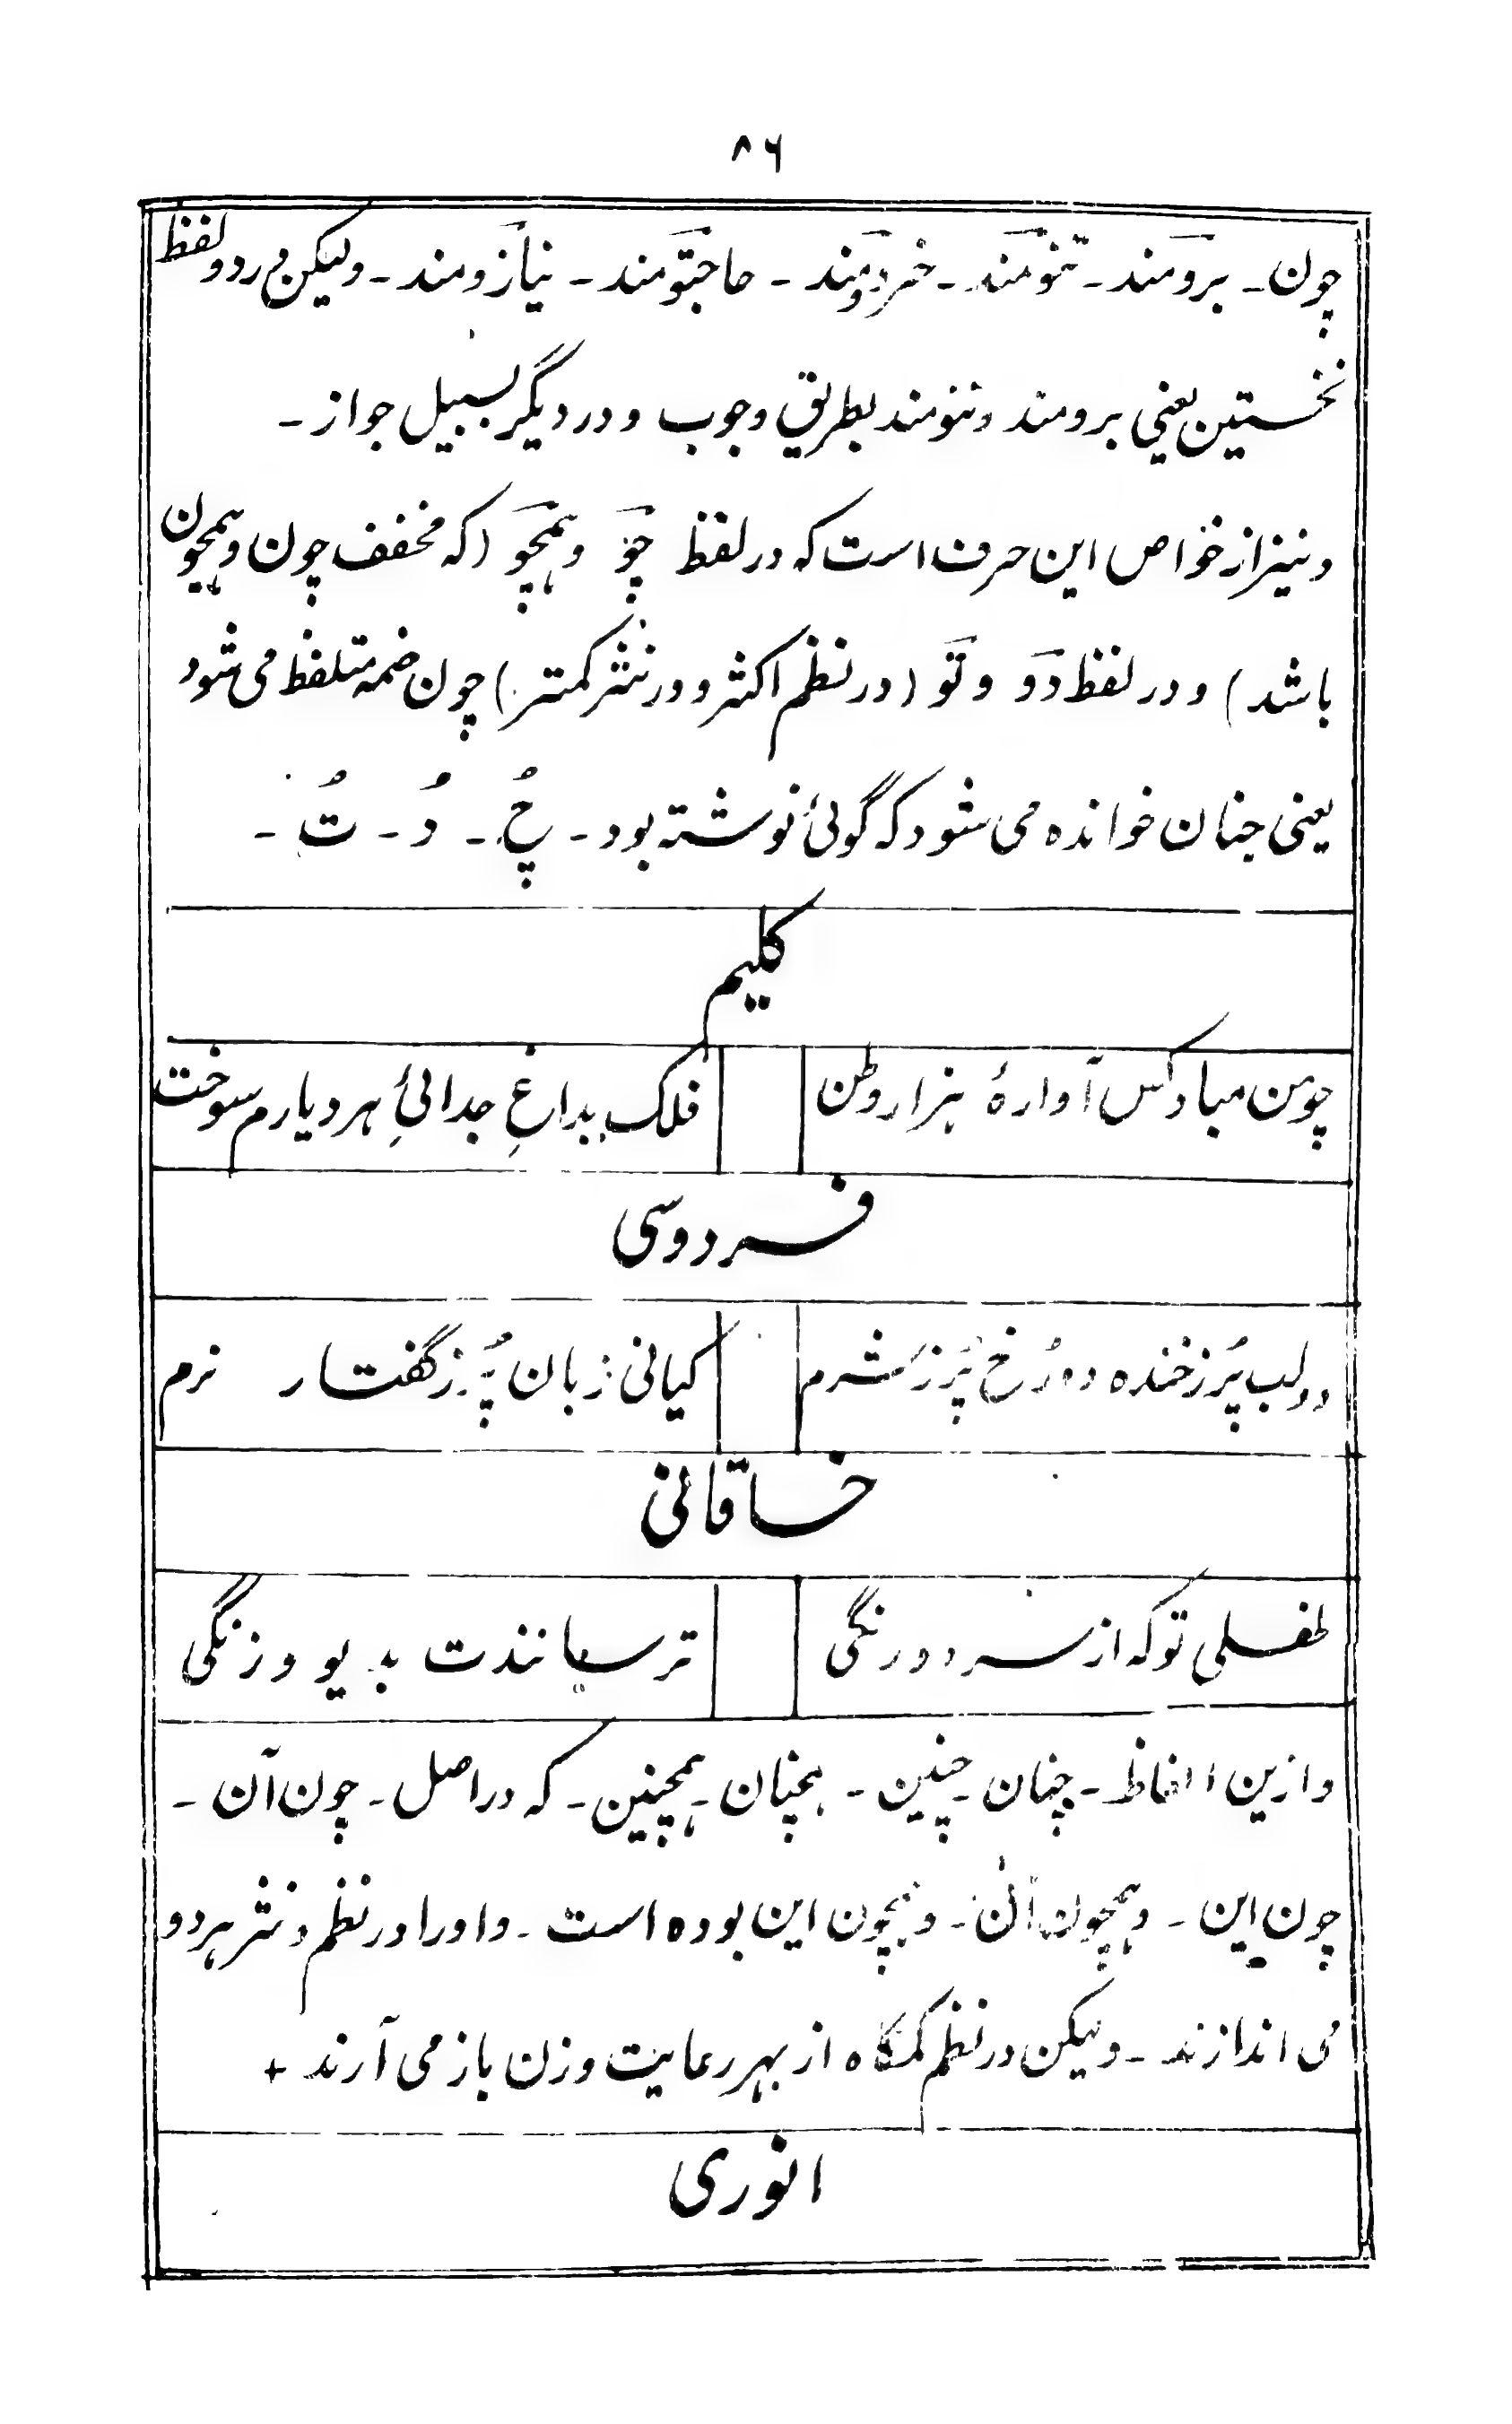 ۸۶
چون ـ برومند ـ تنومند ـ خردومند ـ حاجتومند ـ نیازومند ـ ولیکن در دو لفظ
نخستین یعنی برومند و تنومند بطریق وجوب و در دیگر بسبیل جواز ـ
و نیز از خواص این حرف است که در لفظ چو و همچو (که مخفف چون و همچون
باشد) و در لفظ دو و تو (در نظم اکثر و در نثر کمتر) چون ضمه متلفظ می شود
یعنی چنان خوانده می شود که گوئی نوشته بود ـ چُ ـ دُ ـ تُ ـ
کلیم
چومن مباد کس آوارهٔ هزار وطن فلک بداغِ جدائیِ هر دیارم سوخت
فردوسی
دو لب پُر ز خنده دو رُخ پُر ز شرم کیانی زبان پُر ز گفتار نرم
خاقانی
طفلی تو که از سر دو رنگی ترسانندت بدیو و زنگی
و ازین الفاظ ـ چنان ـ چنین ـ همچنان ـ همچنین ـ که در اصل ـ چون آن ـ
چون این ـ و همچون آن ـ و همچون این بوده است ـ و او را در نظم و نثر هر دو
می اندازند ـ ولیکن در نظم گاه از بهر رعایت وزن باز می آرند +
انوری